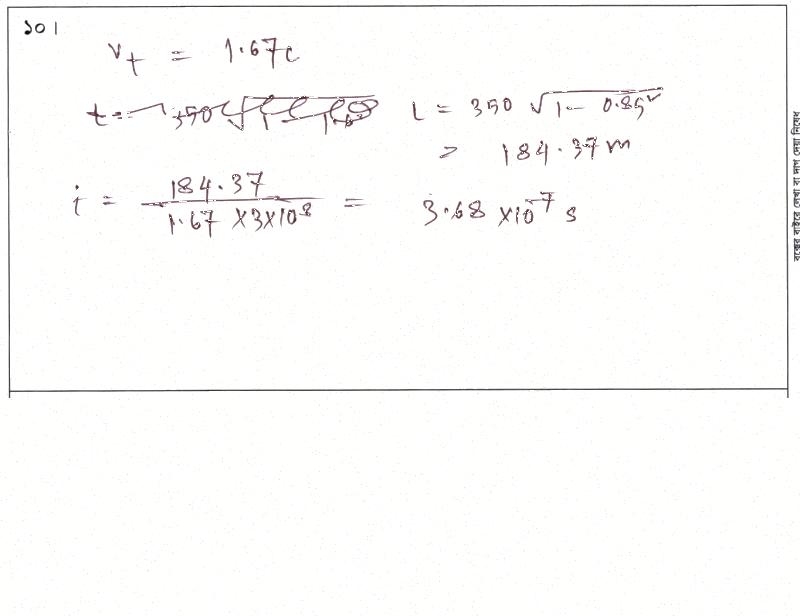 ১০।
v_t = 1.67c
l = 350 √(1 - 0.85²)
= 184.37 m
t = 184.37 / (1.67 × 3×10⁸) = 3.68 × 10⁻⁷ s
বক্সের বাইরে লেখা বা দাগ দেয়া নিষেধ